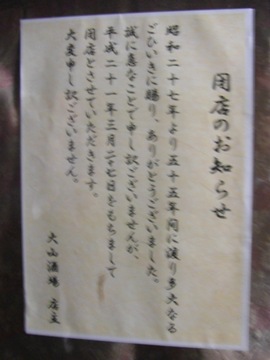 閉店のお知らせ
昭和二十七年より五十五年間に渡り多大なる
ごひいきに賜り、ありがとうございました。
誠に急なことで申し訳ございませんが、
平成二十一年三月二十七日をもちまして
閉店とさせていただきます。
大変申し訳ございません。
大山酒場 店主